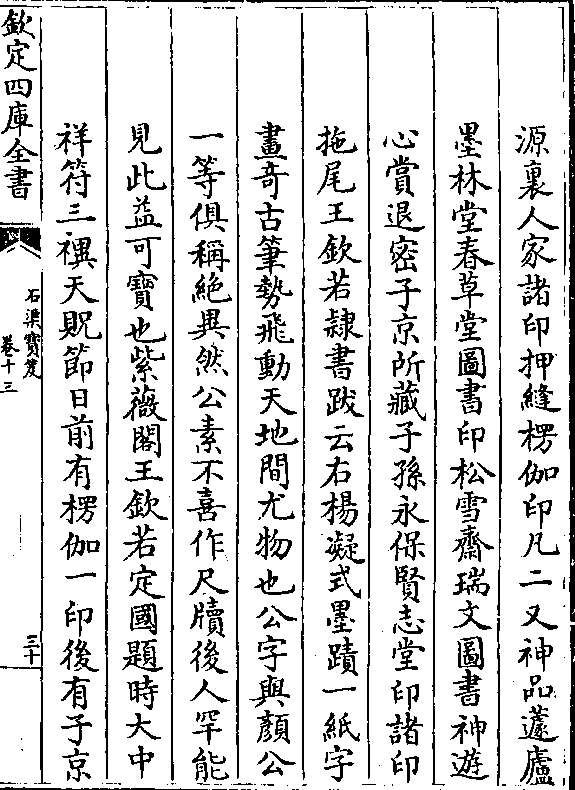 源裏人家諸印押縫楞伽印凡二又神品蘧廬
墨林堂春草堂圖書印松雪齋瑞文圖書神遊
心賞退密子京所藏子孫永保賢志堂印諸印
拖尾王欽若隷書跋云右楊凝式墨蹟一紙字
畫竒古筆勢飛動天地間尤物也公字與顏公
一等俱稱絶異然公素不喜作尺牘後人罕能
見此益可寶也紫薇閣王欽若定國題時大中
祥符三禩天貺節日前有楞伽一印後有子京
欽定四庫全書
石渠寶笈
卷十三
三十